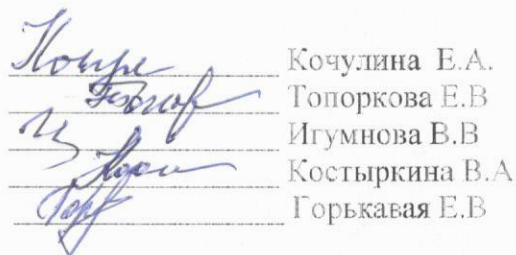 Кочулина Е.А.
Топоркова Е.В
Игумнова В.В
Костыркина В.А
Горькавая Е.В